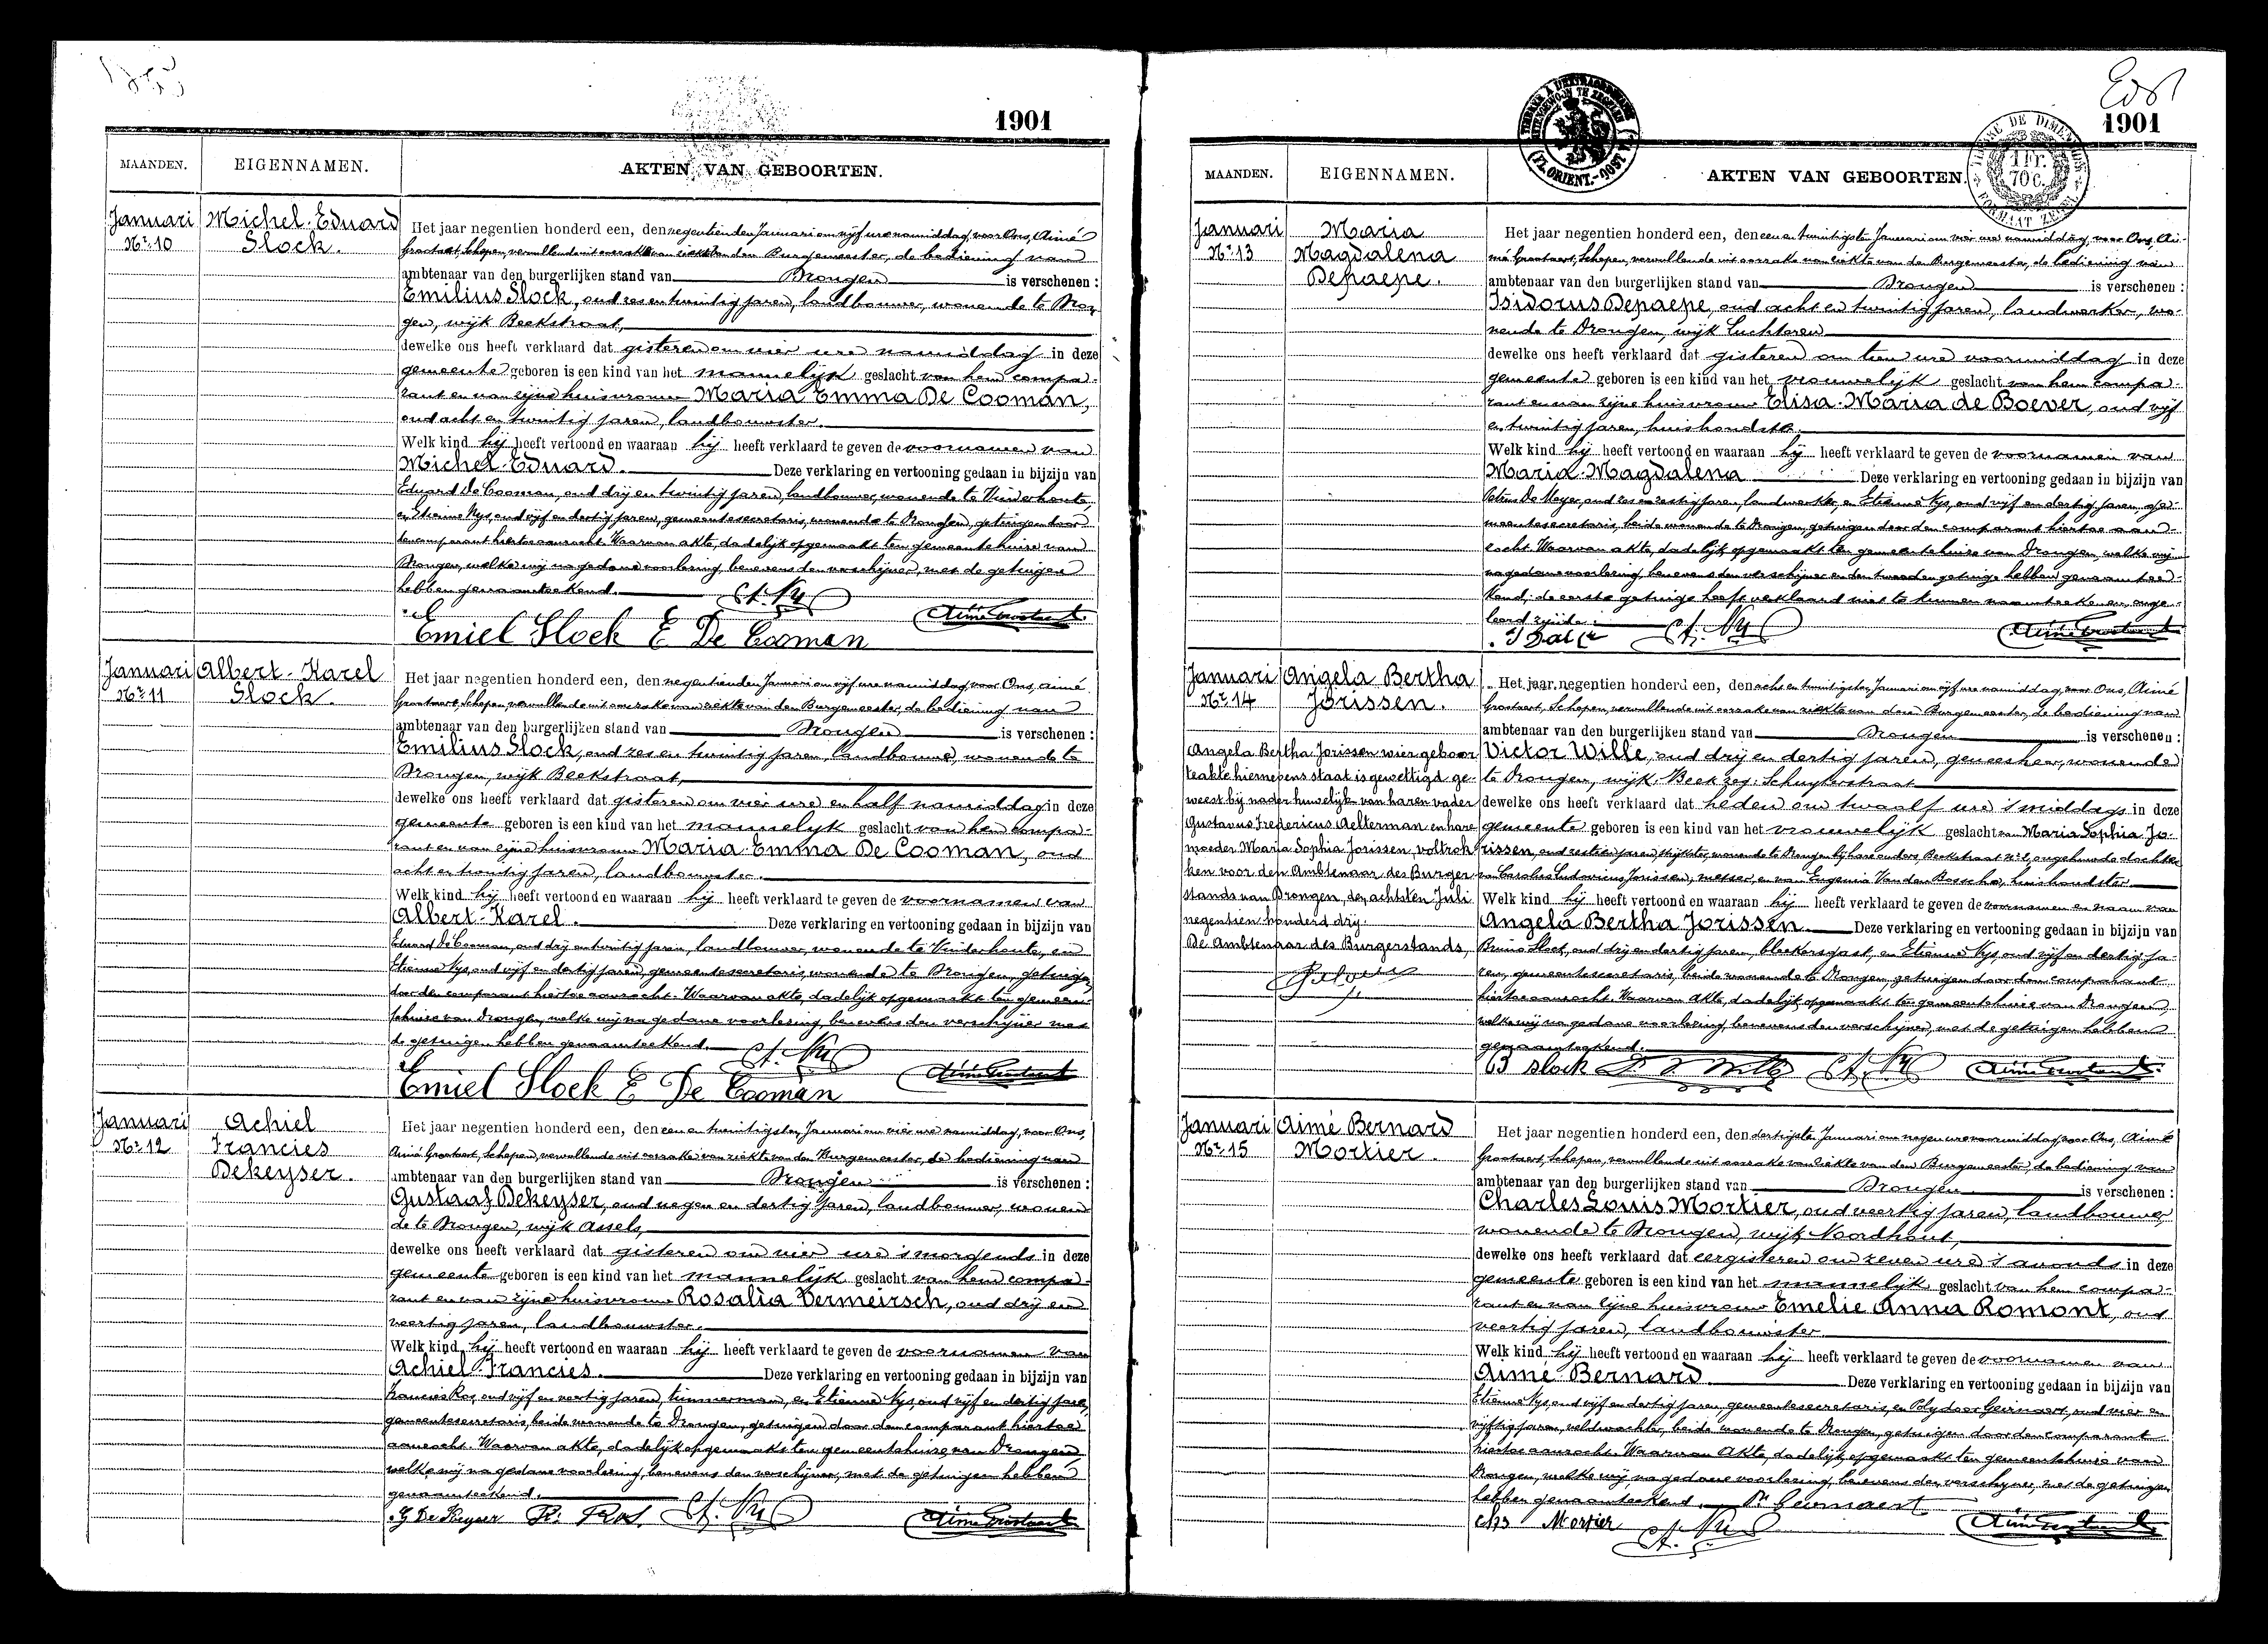 1901
MAANDEN. EIGENNAMEN. AKTEN VAN GEBOORTEN.
Januari Michel-Eduard
Nr. 10 Slock.
Het jaar negentien honderd een, den negentienden Januari om vijf ure namiddag, voor Ons, Aimé
Grootaert, Schepen, vervullende uit oorzake van ziekte van den Burgemeester, de bediening van
ambtenaar van den burgerlijken stand van Drongen is verschenen:
Emilius Slock, oud zes en twintig jaren, landbouwer, wonende te Dron-
gen, wijk Beekstraat,
dewelke ons heeft verklaard dat gisteren om vier ure namiddag in deze
gemeente geboren is een kind van het mannelijk geslacht van hem compa-
rant en van zijne huisvrouw Maria Emma De Cooman,
oud acht en twintig jaren, landbouwster.
Welk kind hij heeft vertoond en waaraan hij heeft verklaard te geven de voornamen van
Michel-Eduard. Deze verklaring en vertooning gedaan in bijzijn van
Eduard De Cooman, oud drij en twintig jaren, landbouwer, wonende te Vinderhoute,
en Etienne Nys, oud vijf en dertig jaren, gemeentesecretaris, wonende te Drongen, getuigen door
den comparant hiertoe aanzocht. Waarvan akte, dadelijk opgemaakt ten gemeentehuize van
Drongen, welke wij na gedane voorlezing, benevens den verschijner, met de getuigen
hebben genaamteekend. Et. Nys
Emiel Slock E De Cooman
Januari Albert-Karel
Nr. 11 Slock.
Het jaar negentien honderd een, den negentienden Januari om vijf ure namiddag, voor Ons, Aimé
Grootaert, Schepen, vervullende uit oorzake van ziekte van den Burgemeester, de bediening van
ambtenaar van den burgerlijken stand van Drongen is verschenen:
Emilius Slock, oud zes en twintig jaren, landbouwer, wonende te
Drongen, wijk Beekstraat,
dewelke ons heeft verklaard dat gisteren om vier ure en half namiddag in deze
gemeente geboren is een kind van het mannelijk geslacht van hem compa-
rant en van zijne huisvrouw Maria-Emma De Cooman, oud
acht en twintig jaren, landbouwster.
Welk kind hij heeft vertoond en waaraan hij heeft verklaard te geven de voornamen van
Albert-Karel. Deze verklaring en vertooning gedaan in bijzijn van
Eduard De Cooman, oud drij en twintig jaren, landbouwer, wonende te Vinderhoute, en
Etienne Nys, oud vijf en dertig jaren, gemeentesecretaris, wonende te Drongen, getuigen
door den comparant hiertoe aanzocht. Waarvan akte, dadelijk opgemaakt ten gemeen-
tehuize van Drongen, welke wij na gedane voorlezing, benevens den verschijner met
de getuigen hebben genaamteekend. Et. Nys
Emiel Slock E De Cooman
Januari Achiel
Nr. 12 Francies
Dekeyser.
Het jaar negentien honderd een, den een en twintigsten Januari om vier ure namiddag, voor Ons,
Aimé Grootaert, Schepen, vervullende uit oorzake van ziekte van den Burgemeester, de bediening van
ambtenaar van den burgerlijken stand van Drongen is verschenen:
Gustaaf Dekeyser, oud negen en dertig jaren, landbouwer, wonen-
de te Drongen, wijk Assels,
dewelke ons heeft verklaard dat gisteren om vier ure 's morgends in deze
gemeente geboren is een kind van het mannelijk geslacht van hem compa-
rant en van zijne huisvrouw Rosalia Vermeirsch, oud drij en
veertig jaren, landbouwster.
Welk kind hij heeft vertoond en waaraan hij heeft verklaard te geven de voornamen van
Achiel Francies. Deze verklaring en vertooning gedaan in bijzijn van
Francies Ros, oud vijf en veertig jaren, timmerman, en Etienne Nys, oud vijf en dertig jaren,
gemeentesecretaris, beide wonende te Drongen, getuigen door den comparant hiertoe
aanzocht. Waarvan akte, dadelijk opgemaakt ten gemeentehuize van Drongen,
welke wij na gedane voorlezing, benevens den verschijner, met de getuigen hebben
genaamteekend.
G De Keyser Fr. Ros. Et. Nys
1901
1 Fr. 70 C.
MAANDEN. EIGENNAMEN. AKTEN VAN GEBOORTEN.
Januari Maria
Nr. 13 Magdalena
Depaepe.
Het jaar negentien honderd een, den een en twintigsten Januari om vier ure namiddag, voor Ons, Ai-
mé Grootaert, Schepen, vervullende uit oorzake van ziekte van den Burgemeester, de bediening van
ambtenaar van den burgerlijken stand van Drongen is verschenen:
Isidorus Depaepe, oud acht en twintig jaren, landwerker, wo-
nende te Drongen, wijk Luchteren
dewelke ons heeft verklaard dat gisteren om tien ure voormiddag in deze
gemeente geboren is een kind van het vrouwelijk geslacht van hem compa-
rant en van zijne huisvrouw Elisa-Maria de Boever, oud vijf
en twintig jaren, huishoudster.
Welk kind hij heeft vertoond en waaraan hij heeft verklaard te geven de voornamen van
Maria-Magdalena Deze verklaring en vertooning gedaan in bijzijn van
De Meyer, oud zes en zestig jaren, landwerker, en Etienne Nys, oud vijf en dertig jaren, ge-
meentesecretaris, beide wonende te Drongen, getuigen door den comparant hiertoe aan-
zocht. Waarvan akte, dadelijk opgemaakt ten gemeentehuize van Drongen, welke wij
na gedane voorlezing, benevens den verschijner en den tweeden getuige hebben genaamtee-
kend; de eerste getuige heeft verklaard niet te kunnen naamteekenen, onge-
leerd zijnde.
Et. Nys
Januari Angela Bertha
Nr. 14 Jorissen.
Angela Bertha Jorissen wier geboor-
teakte hiernevens staat is gewettigd ge-
weest bij nader huwelijk van haren vader
Gustavus Fredericus Aelterman en hare
moeder Maria Sophia Jorissen, voltrok-
ken voor den Ambtenaar des Burger-
stands van Drongen, den achtsten Juli
negentien honderd drij.
De Ambtenaar des Burgerstands,
Het jaar negentien honderd een, den acht en twintigsten Januari om vijf ure namiddag, voor Ons, Aimé
Grootaert, Schepen, vervullende uit oorzake van ziekte van den Burgemeester, de bediening van
ambtenaar van den burgerlijken stand van Drongen is verschenen:
Victor Wille, oud drij en dertig jaren, geneesheer, wonende
te Drongen, wijk Beek zeg: Schuyterstraat
dewelke ons heeft verklaard dat heden om twaalf ure 's middags in deze
gemeente geboren is een kind van het vrouwelijk geslacht en Maria Sophia Jo-
rissen, oud zestien jaren, wonende te Drongen bij hare ouders Beekstraat ongehuwde dochter
van Carolus Ludovicus Jorissen, en van Eugenia Van den Bossche, huishoudster
Welk kind hij heeft vertoond en waaraan hij heeft verklaard te geven de voornamen en naam van
Angela Bertha Jorissen. Deze verklaring en vertooning gedaan in bijzijn van
Bruno Slock, oud drij en dertig jaren, bleekersgast, en Etienne Nys, oud vijf en dertig ja-
ren, gemeentesecretaris, beide wonende te Drongen, getuigen door den comparant
hiertoe aanzocht. Waarvan akte, dadelijk opgemaakt ten gemeentehuize van Drongen,
welke wij na gedane voorlezing, benevens den verschijner, met de getuigen hebben
genaamteekend.
B Slock Et. Nys
Januari Aimé Bernard
Nr. 15 Mortier.
Het jaar negentien honderd een, den dertigsten Januari om negen ure voormiddag, voor Ons, Aimé
Grootaert, Schepen, vervullende uit oorzake van ziekte van den Burgemeester, de bediening van
ambtenaar van den burgerlijken stand van Drongen is verschenen:
Charles Louis Mortier, oud veertig jaren, landbouwer,
wonende te Drongen, wijk Noordhout,
dewelke ons heeft verklaard dat eergisteren om zeven ure 's avonds in deze
gemeente geboren is een kind van het mannelijk geslacht van hem compa-
rant en van zijne huisvrouw Emelie Anna Romont, oud
veertig jaren, landbouwster.
Welk kind hij heeft vertoond en waaraan hij heeft verklaard te geven de voornamen van
Aimé Bernard. Deze verklaring en vertooning gedaan in bijzijn van
Etienne Nys, oud vijf en dertig jaren, gemeentesecretaris, en Polydoor Geirnaert, oud vier en
vijftig jaren, veldwachter, beide wonende te Drongen, getuigen door den comparant
hiertoe aanzocht. Waarvan Akte, dadelijk opgemaakt ten gemeentehuize van
Drongen, welke wij, na gedane voorlezing, benevens den verschijner, met de getuigen
hebben genaamteekend. P. Geirnaert
Chs Mortier Et. Nys